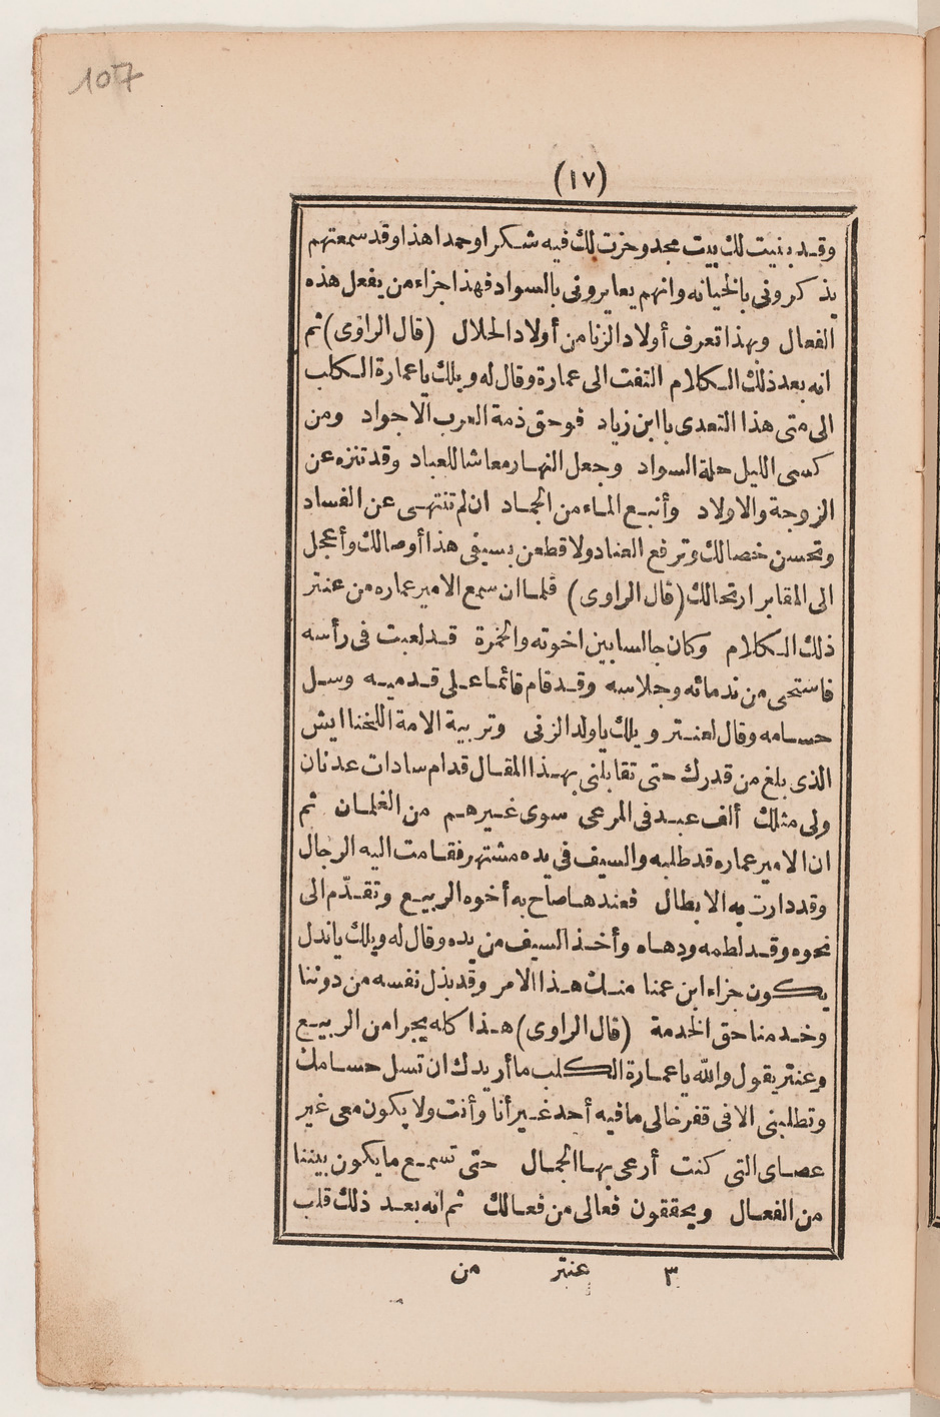 107
(١٧)
وقد بنيت لك بيت مجد وحزت لك فيه شكرا وحمدا هذا وقد سمعتهم
يذكروني بالخيانه وانهم يعايروني بالسواد فهذا جزاء من يفعل هذه
الفعال وبهذا تعرف أولاد الزنا من أولاد الحلال (قال الراوى) ثم
انه بعد ذلك الكلام التفت الى عمارة وقال له ويلك يا عمارة الكلب
الى متى هذا التعدى يا ابن زياد فوحق ذمة العرب الاجواد ومن
كسى الليل حلة السواد وجعل النهار معاشا للعباد وقد تنزه عن
الزوجة والاولاد وأنبع الماء من الجماد ان لم تنتهى عن الفساد
وتحسن خصالك وترفع العناد ولا قطعن بسيفى هذا أوصالك وأعجل
الى المقابر ارتحالك (قال الراوى) فلما ان سمع الامير عماره من عنتر
ذلك الكلام وكان جالسا بين اخوته والخمرة قد لعبت فى رأسه
فاستحى من ندمائه وجلاسه وقد قام قائما على قدميه وسل
حسامه وقال لعنتر ويلك يا ولد الزنى وتربية الامة اللخنا ايش
الذى بلغ من قدرك حتى تقابلنى بهذا المقال قدام سادات عدنان
ولى مثلك ألف عبد فى المرعى سوى غيرهم من الغلمان ثم
ان الامير عماره قد طلبه والسيف فى يده مشتهر فقامت اليه الرجال
وقد دارت به الابطال فعندها صاح به أخوه الربيع وتقدّم الى
نحوه وقد لطمه ودهاه وأخذ السيف من يده وقال له ويلك يا ندل
يكون جزاء ابن عمنا منك هذا الامر وقد بذل نفسه من دوننا
وخدمنا حق الخدمة (قال الراوى) هذا كله يجرا من الربيع
وعنتر يقول والله يا عمارة الكلب ما أريدك ان تسل حسامك
وتطلبنى الا فى قفر خالى ما فيه أحد غير أنا وأنت ولا يكون معى غير
عصاى التى كنت أرعى بها الجمال حتى تسمع ما يكون بيننا
من الفعال ويحققون فعالى من فعالك ثم انه بعد ذلك قلب
٣ عنتر من